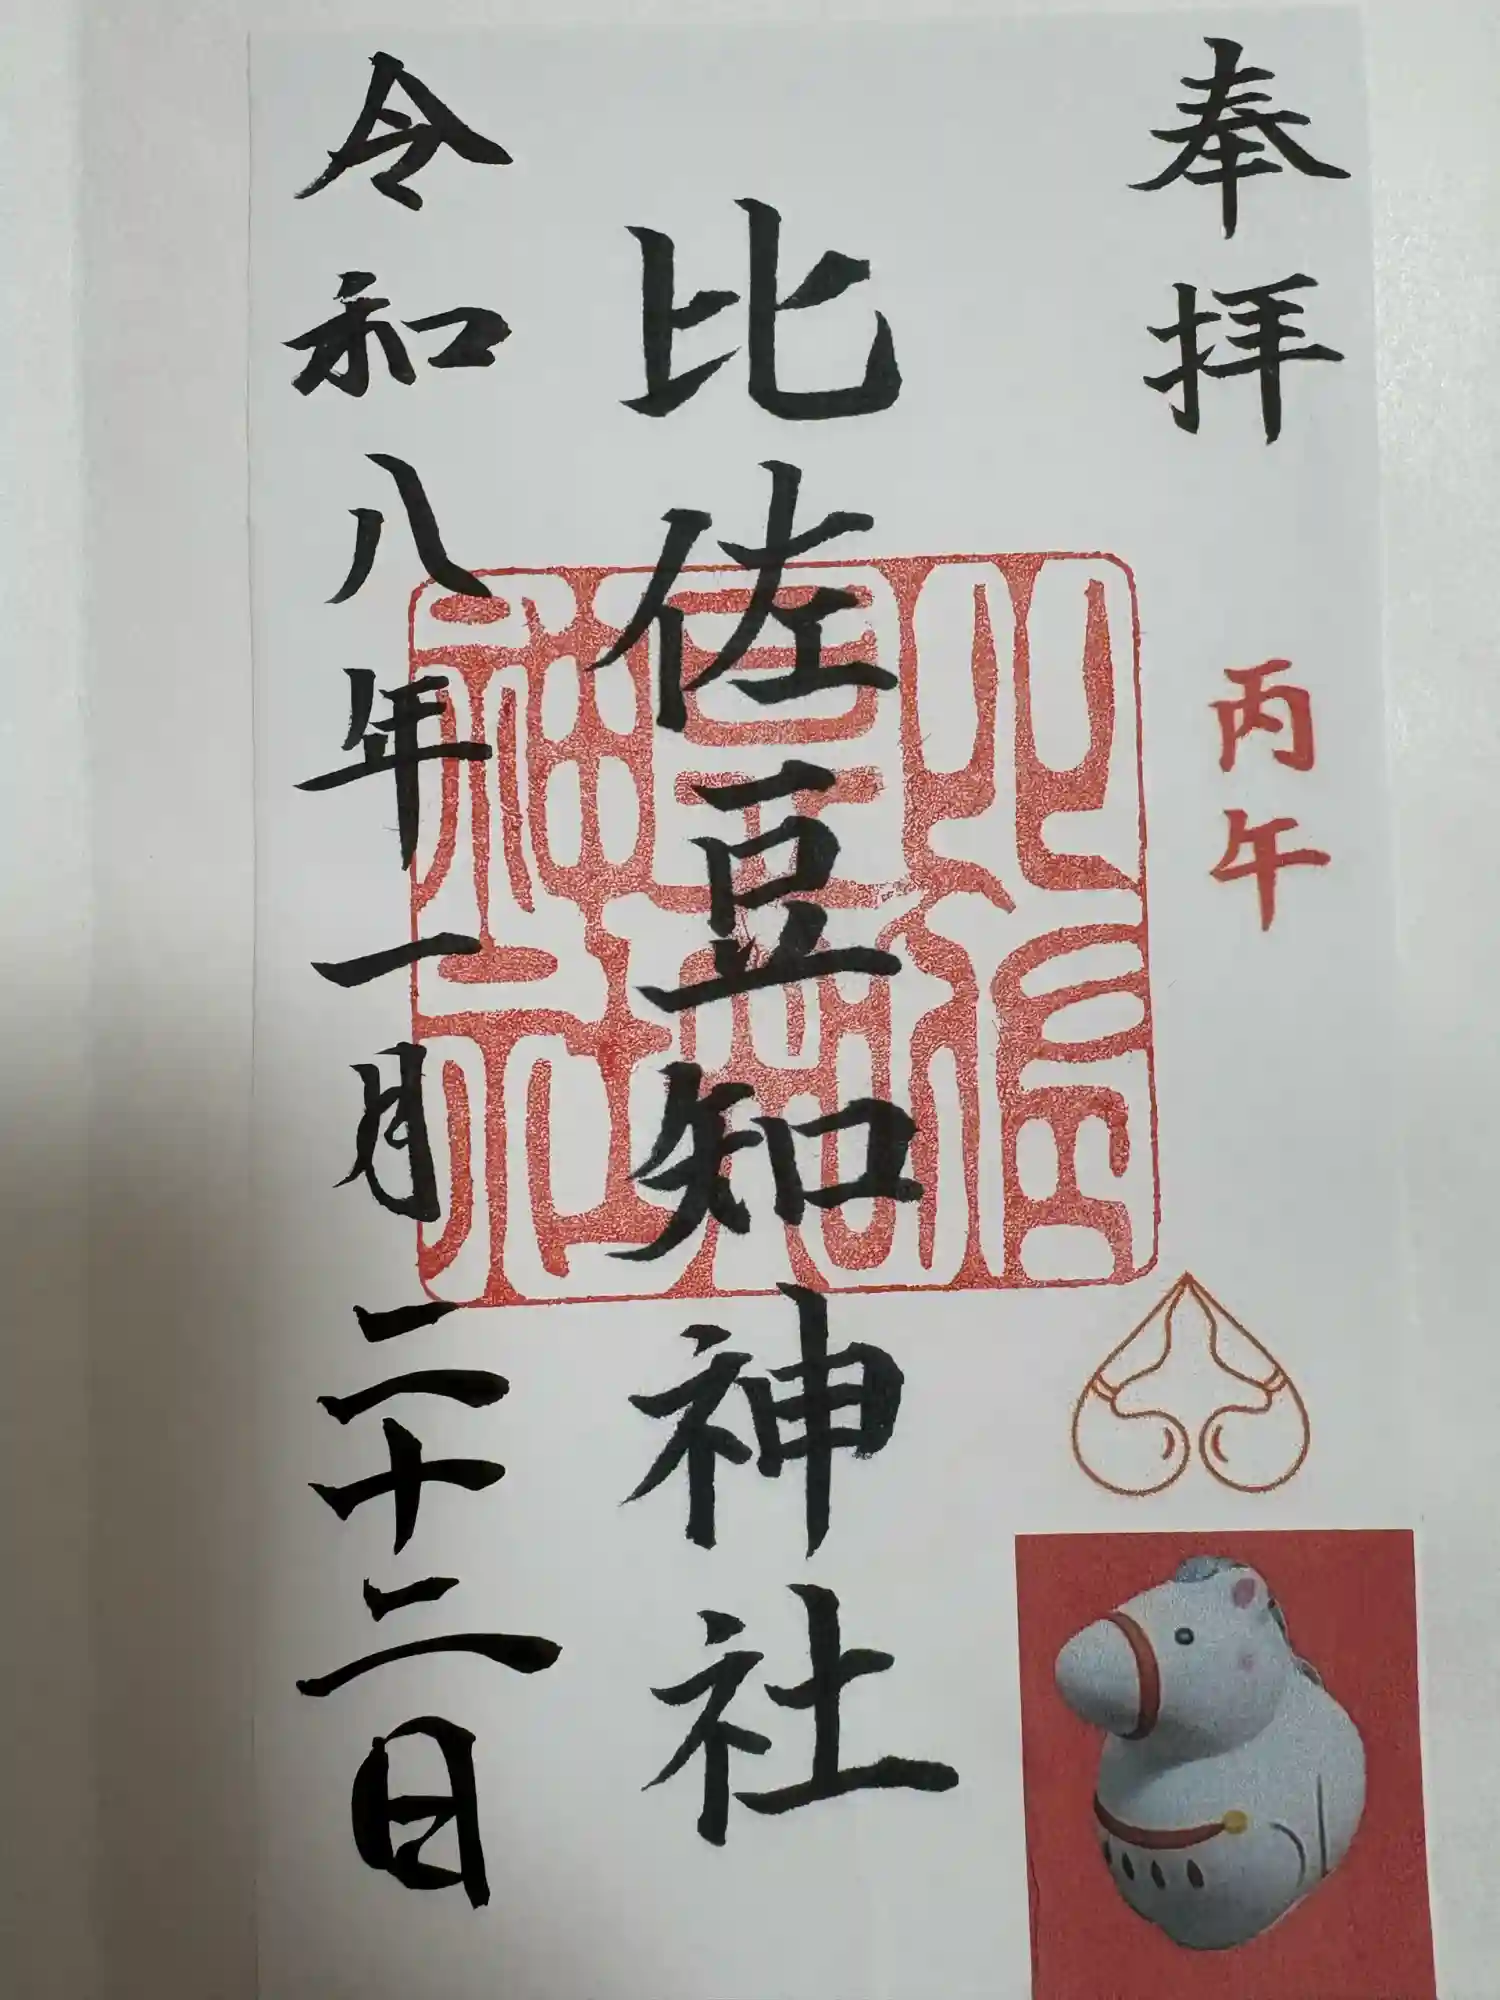 奉拝
丙午
比佐豆知神社
令和八年一月二十二日